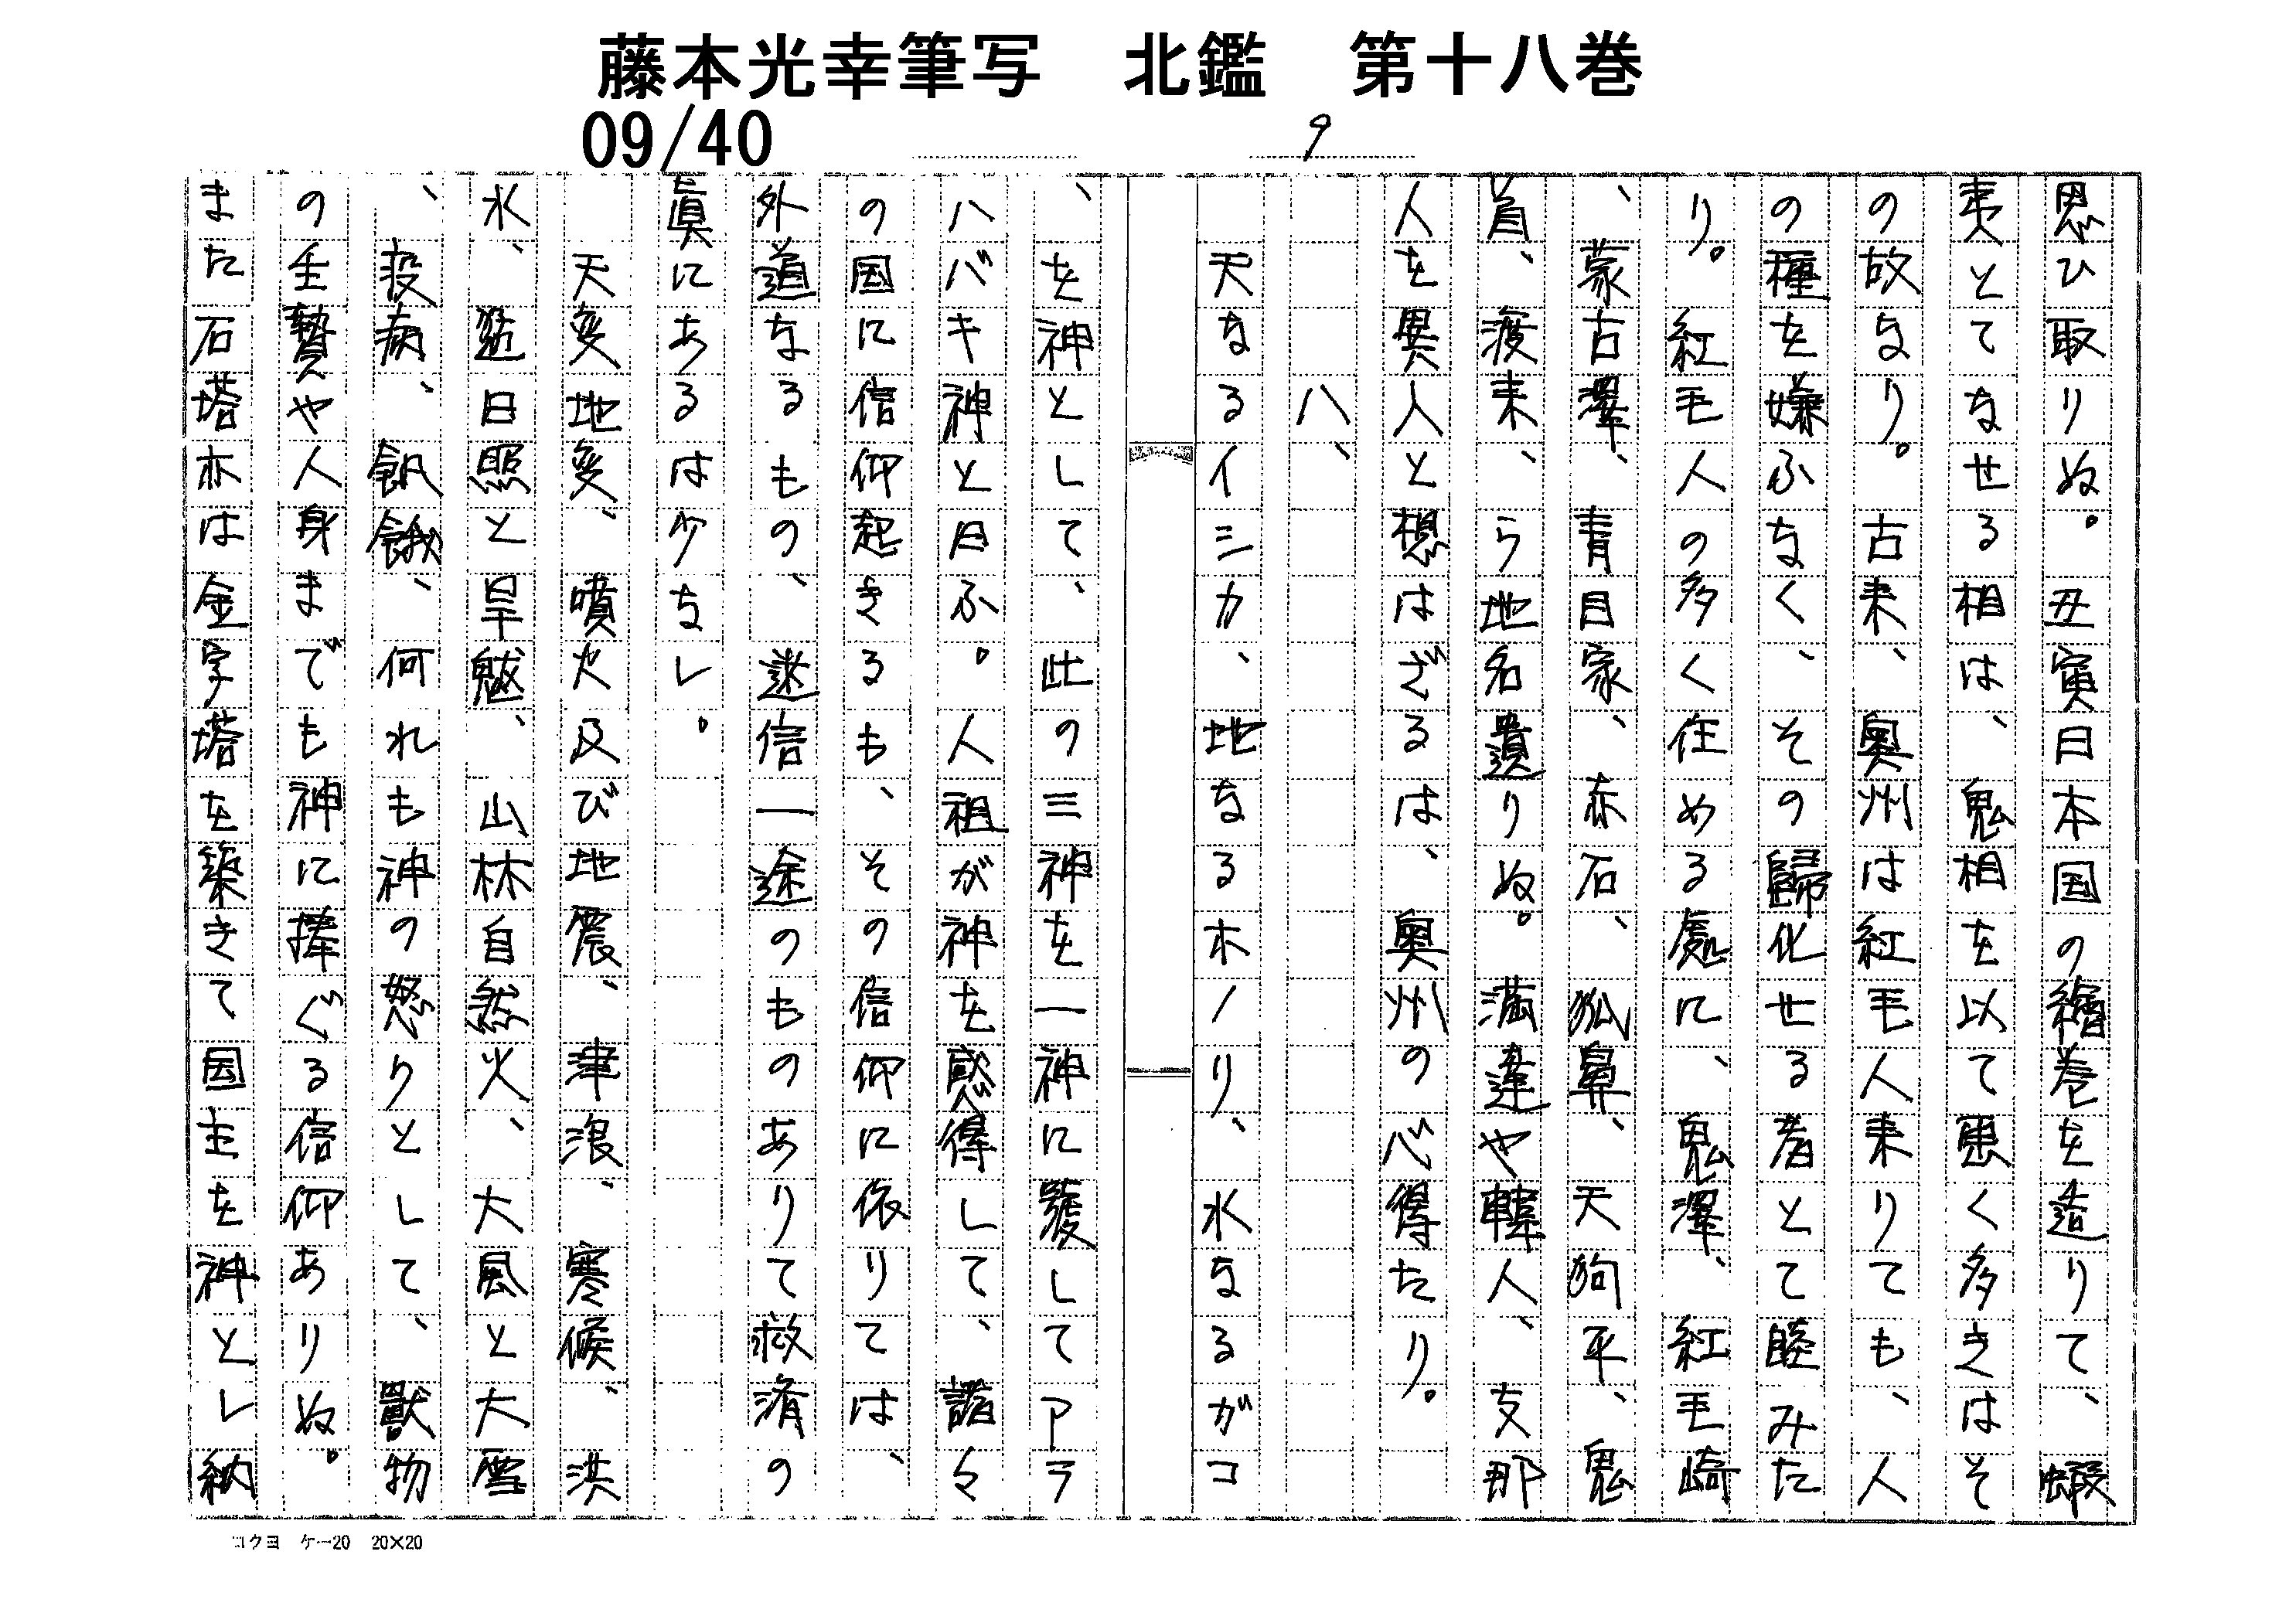 藤本光幸筆写　北鑑　第十八巻
09/40
9
思ひ取りぬ。丑寅日本国の繪巻を造りて、蝦
夷とてなせる相は、鬼相を以て悪く多きはそ
の故なり。古来、奥州は紅毛人来りても、人
の種を嫌ふなく、その歸化せる者とて睦みた
り。紅毛人の多く住める處に、鬼澤、紅毛崎
、蒙古澤、青目家、赤石、狐鼻、天狗平、鬼
首、渡来、ら地名遺りぬ。満達や韓人、支那
人を異人と想はざるは、奥州の心得たり。
八、
天なるイシカ、地なるホノリ、水なるガコ
、を神として、此の三神を一神に護してアラ
ハバキ神と曰ふ。人祖が神を感得して、諸々
の国に信仰起きるも、その信仰に依りては、
外道なるもの、迷信一途のものありて救済の
眞にあるは少なし。
天変地変、噴火及び地震、津浪、寒候、洪
水、猛日照と旱魃、山林自然火、大風と大雪
、疫病、飢餓、何れも神の怒りとして、獸物
の生贄や人身までも神に捧ぐる信仰ありぬ。
また石塔亦は金字塔を築きて国主を神とし納
コクヨ　ケー20　20×20